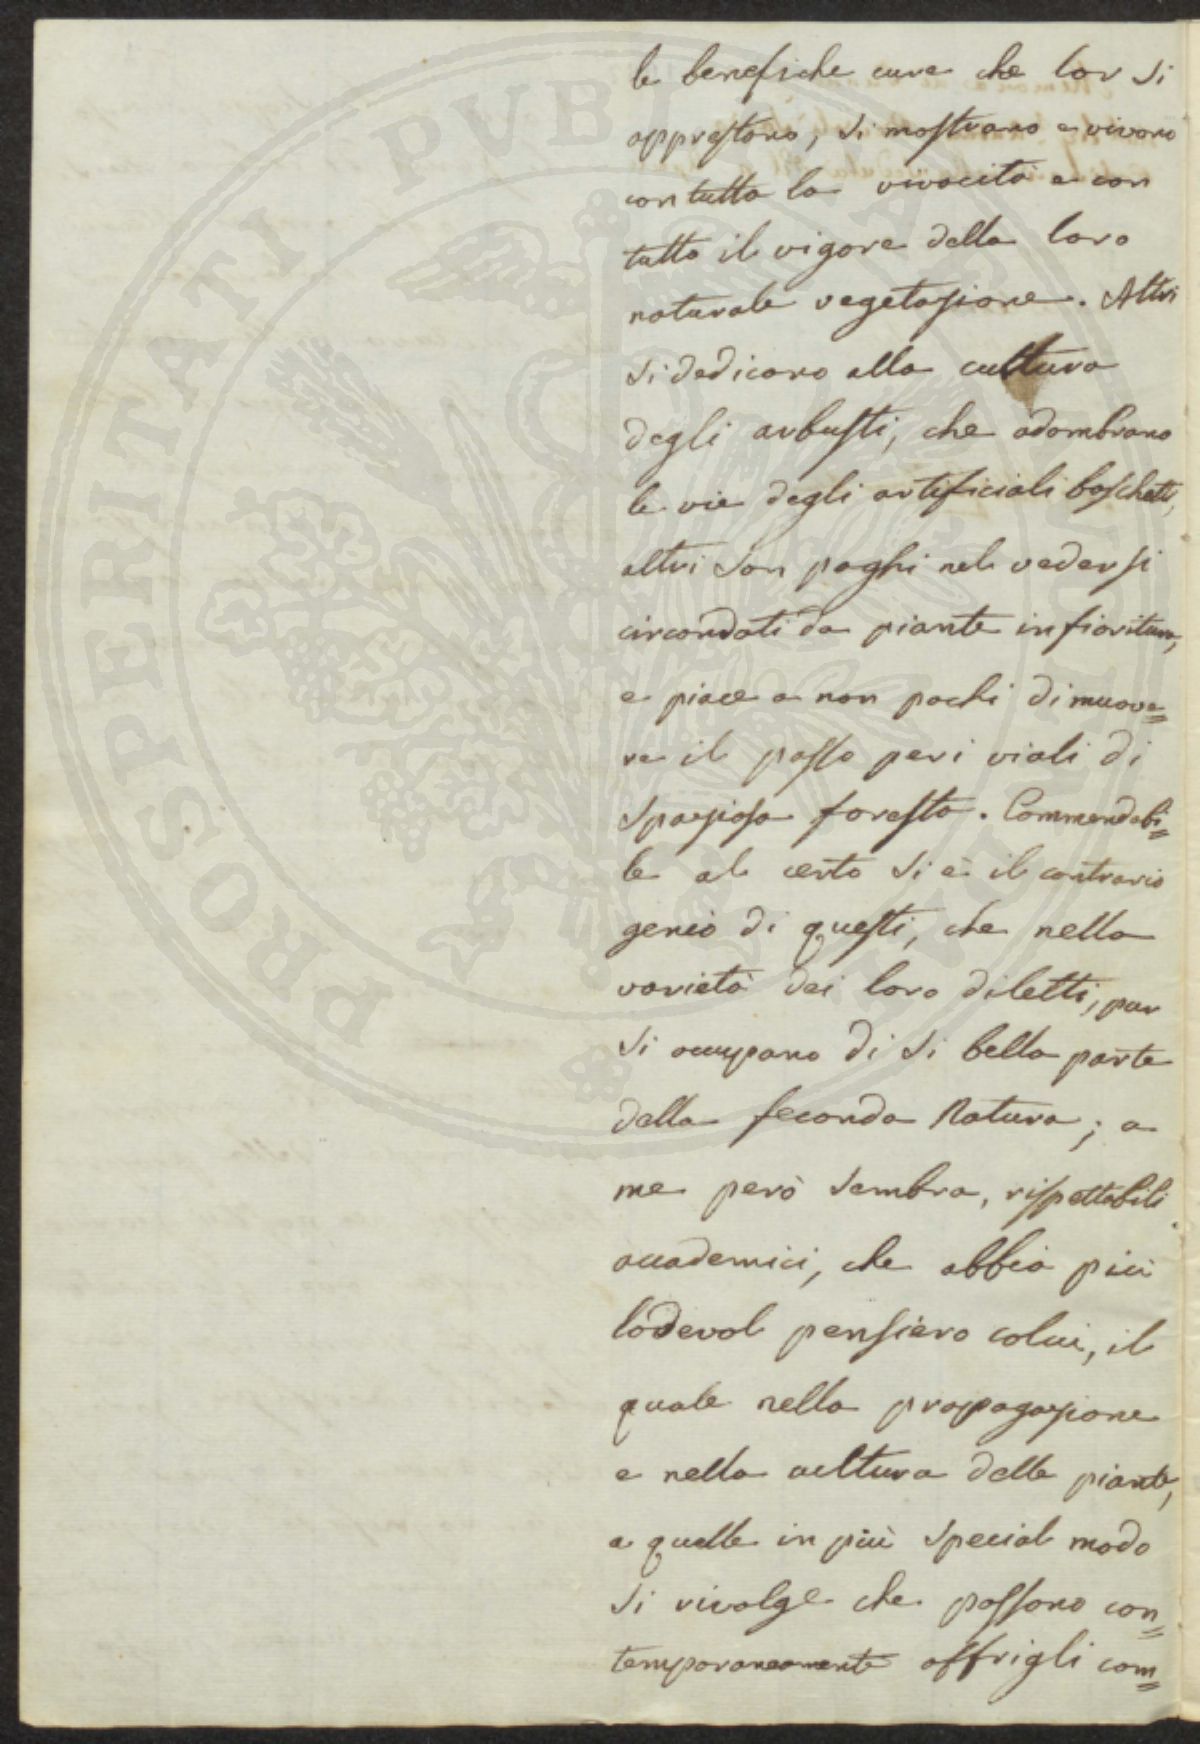 le benefiche cure che lor si
apprestano, si mostrano e vivono
con tutta la vivacità e con
tutto il vigore della loro
naturale vegetazione. Altri
si dedicano alla cultura
degli arbusti, che adombrano
le vie degli artificiali boschetti,
altri son paghi nel vedersi
circondati da piante in fioritura,
e piace a non pochi di muove=
re il passo per i viali di
spaziosa foresta. Commendabi=
le al certo si è il contrario
genio di questi, che nella
varietà dei loro diletti, pur
si occupano di si bella parte
della feconda Natura; a
me però sembra, rispettabili
accademici, che abbia più
lodevol pensiero colui, il
quale nella propagazione
e nella cultura delle piante,
a quelle in più special modo
si rivolge che possono con=
temporaneamente offrigli com=
PROSPERITATI PUBLICAE AUGENDAE